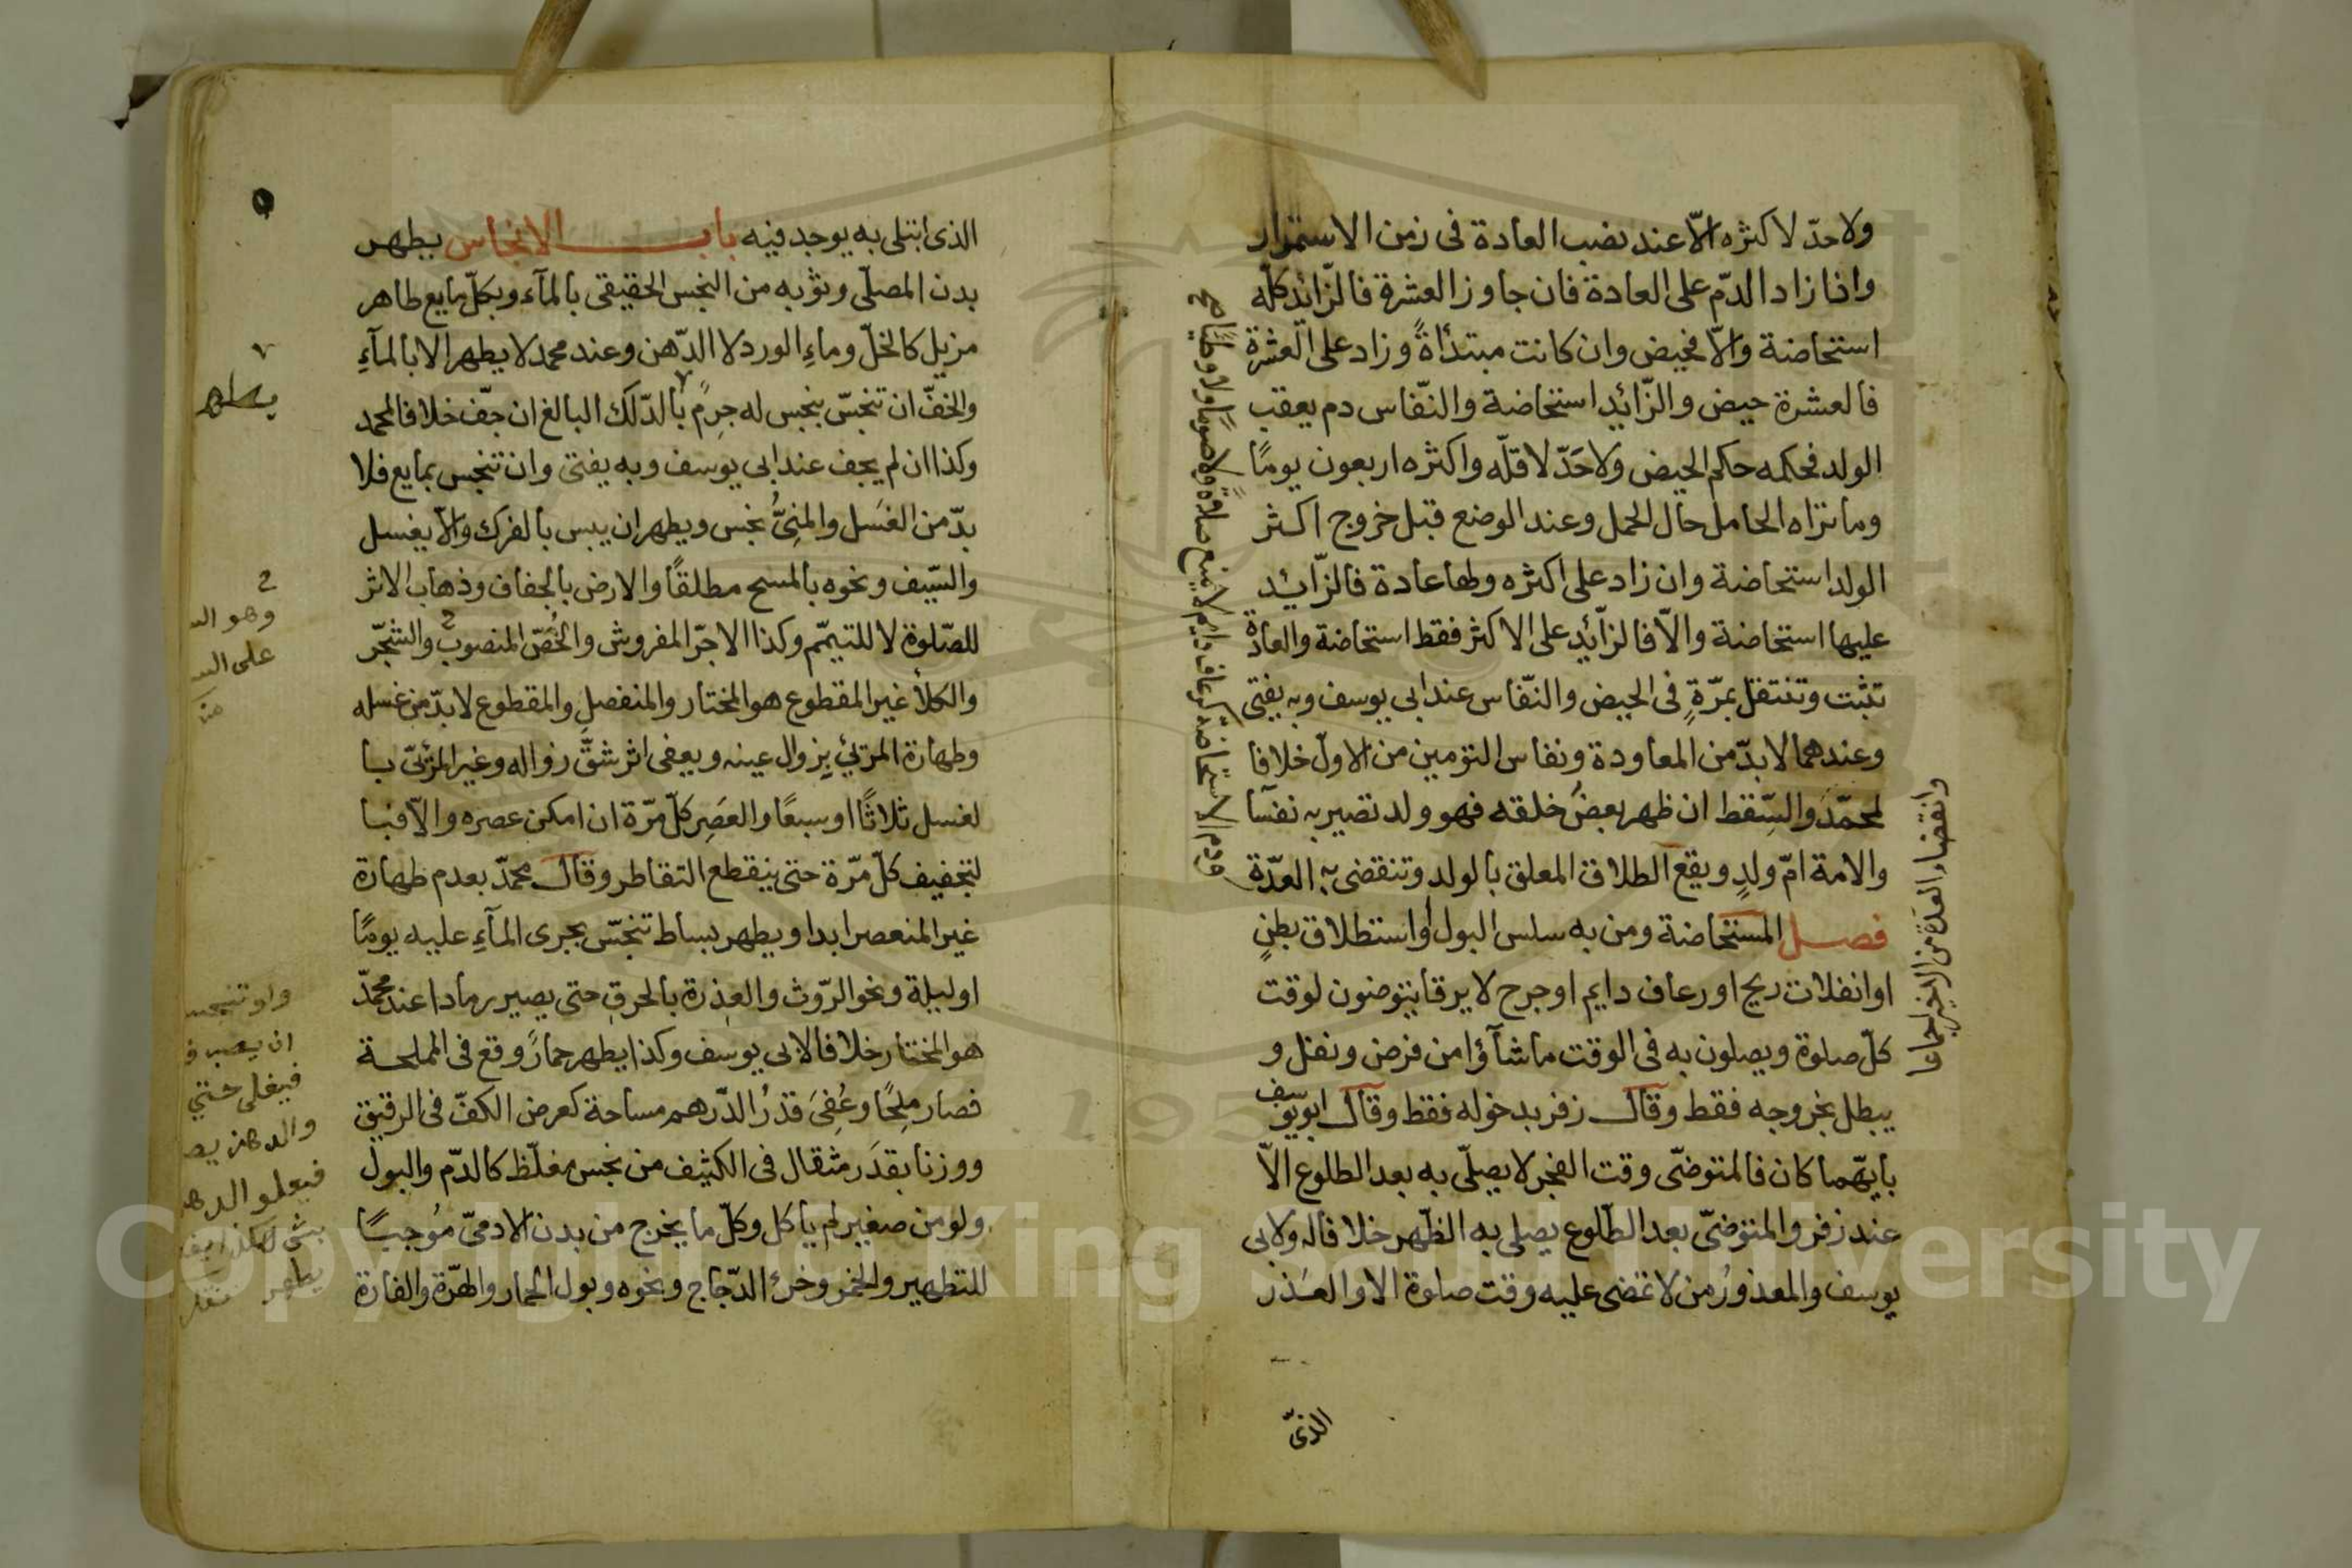 ولا حدّ لاكثره الّا عند نصب العادة فى زمن الاستمرار
واذا زاد الدّم على العادة فان جاوز العشرة فالزّائد كلّه
استحاضة والّا فحيض وان كانت مبتدأةً وزاد على العشرة
فالعشرة حيض والزّائد استحاضة والنّفاس دم يعقب
الولد فحكمه حكم الحيض ولا حَدّ لاقلّه واكثره اربعون يومًا
وما تراه الحامل حال الحمل وعند الوضع قبل خروج اكثر
الولد استحاضة وان زاد على اكثره ولها عادة فالزّايد
عليها استحاضة والّا فالزّائد على الاكثر فقط استحاضة والعادة
تثبت وتنتقل بمرّةٍ فى الحيض والنّفاس عند ابى يوسف وبه يفتى
وعندهما لا بدّ من المعاودة ونفاس التومين من الاول خلافا
لمحمّد والسّقط ان ظهر بعضُ خلقه فهو ولد تصير به نفسآ
والامة امّ ولدٍ ويقع الطلاق المعلق بالولد وتنقضى به العدّة
فصل المستحاضة ومن به سلس البول او استطلاق بطنٍ
او انفلات ريح او رعاف دايم او جرح لا يرقا يتوضون لوقت
كلّ صلوة ويصلون به فى الوقت ما شآؤا من فرض ونفل و
يبطل بخروجه فقط وقال زفر بدخوله فقط وقال ابو يوسف
بايّهما كان فالمتوضّى وقت الفجر لا يصلّى به بعد الطلوع الّا
عند زفر والمتوضّى بعد الطّلوع يصلى به الظّهر خلافا له ولابى
يوسف والمعذورُ من لا تمضى عليه وقت صلوة الا والعذر
الذى
ودم الاستحاضة كرعاف دايم لا يمنع صلاةً ولا صومًا ولا وطيًا صح
وانقضاء العدّة من الاخير اجماعا
الذى ابتلى به يوجد فيه باب الانجاس يطهر
بدن المصلّى وثوبه من النجس الحقيقى بالمآء وبكلّ مايع طاهر
مزيل كالخلّ وماءِ الورد لا الدّهن وعند محمد لا يطهر الا بالمآءِ
والخفّ ان تنجّس بنجس له جرمٌ بالدّلك البالغ ان جفّ خلافا لمحمد
وكذا ان لم يجف عند ابى يوسف وبه يفتى وان تنجس بمايع فلا
بدّ من الغَسل والمنِىُّ نجس ويطهر ان يبس بالفرك والّا يغسل
والسّيف ونحوه بالمسح مطلقًا والارض بالجفاف وذهاب الاثر
للصّلوة لا للتيمّم وكذا الاجرّ المفروش والخُصّ المنصوب والشجّر
والكلأ غير المقطوع هو المختار والمنفصل والمقطوع لا بدّ من غسله
وطهارة المرئي بزوال عينه ويعفى اثر شقّ زواله وغير المرئىّ با
لغسل ثلاثًا او سبعًا والعَصِر كلّ مرّة ان امكن عصره والّا فبا
لتجفيف كلّ مرّة حتى ينقطع التقاطر وقال محمدّ بعدم طهارة
غير المنعصر ابدا ويطهر بساط تنجّس بجرى المآءِ عليه يومًا
او ليلة ونحو الرّوث والعِذرة بالحرقِ حتى يصير رمادا عند محمدّ
هو المختار خلافا لابى يوسف وكذا يطهر حمارٌ وقع فى المملحة
فصار ملحًا وعُفِىَ قدرُ الدّرهم مساحة كعرض الكفّ فى الرقيق
ووزنا بقدَر مثقال فى الكثيف من نجس مغلّظ كالدّم والبول
ولو من صغير لم يأكل وكلّ ما يخرج من بدن الادمىّ مُوجبًا
للتطهير والخمر وخرء الدّجاج ونحوه وبول الحمار والهرّة والفارة
يطهر
وهو
على
ولو تنجس
فيغلى حتى
فيعلو الدهن
يطهر
Copyright © King Saud University
195